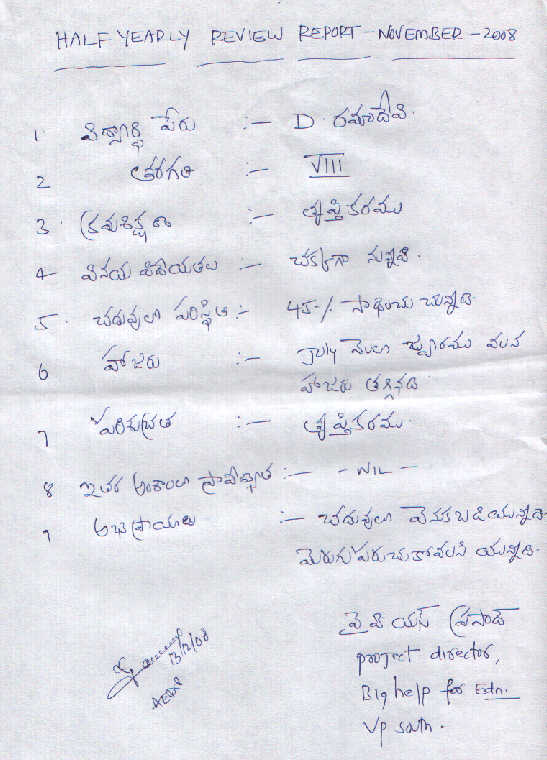 HALF YEARLY REVIEW REPORT - NOVEMBER - 2008
1 విద్యార్థి పేరు :- D. రమాదేవి.
2 తరగతి :- VIII
3. క్రమశిక్షణ :- తృప్తికరము
4 వినయ విధేయతలు :- చక్కగా నున్నవి.
5. చదువులో పరిస్థితి :- 45-/. సాధించు చున్నది.
6 హాజరు :- July నెలలో జ్వరము వలన
హాజరు తగ్గినది.
7 పరిశుభ్రత :- తృప్తికరము.
8 ఇతర అంశాలలో ప్రావీణ్యత :- - NIL -
9 అభిప్రాయాలు :- చదువులో వెనకబడియున్నది.
మెరుగుపరుచుకోవలసి యున్నది.
వై వి యస్ ప్రసాద్
project director,
Big help for Edn.
VP south.
13/12/08